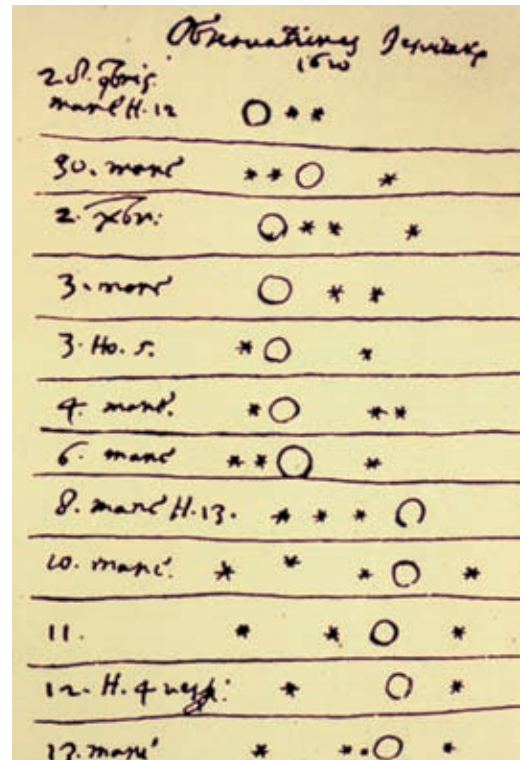 Observationes Jesuitarum
1610
2. S. 9bris.
mane H. 12
30. mane
2. xbr:
3. mane
3. Ho. 5.
4. mane.
6. mane
8. mane H. 13.
10. mane.
11.
12. H. 4 vesp:
13. mane